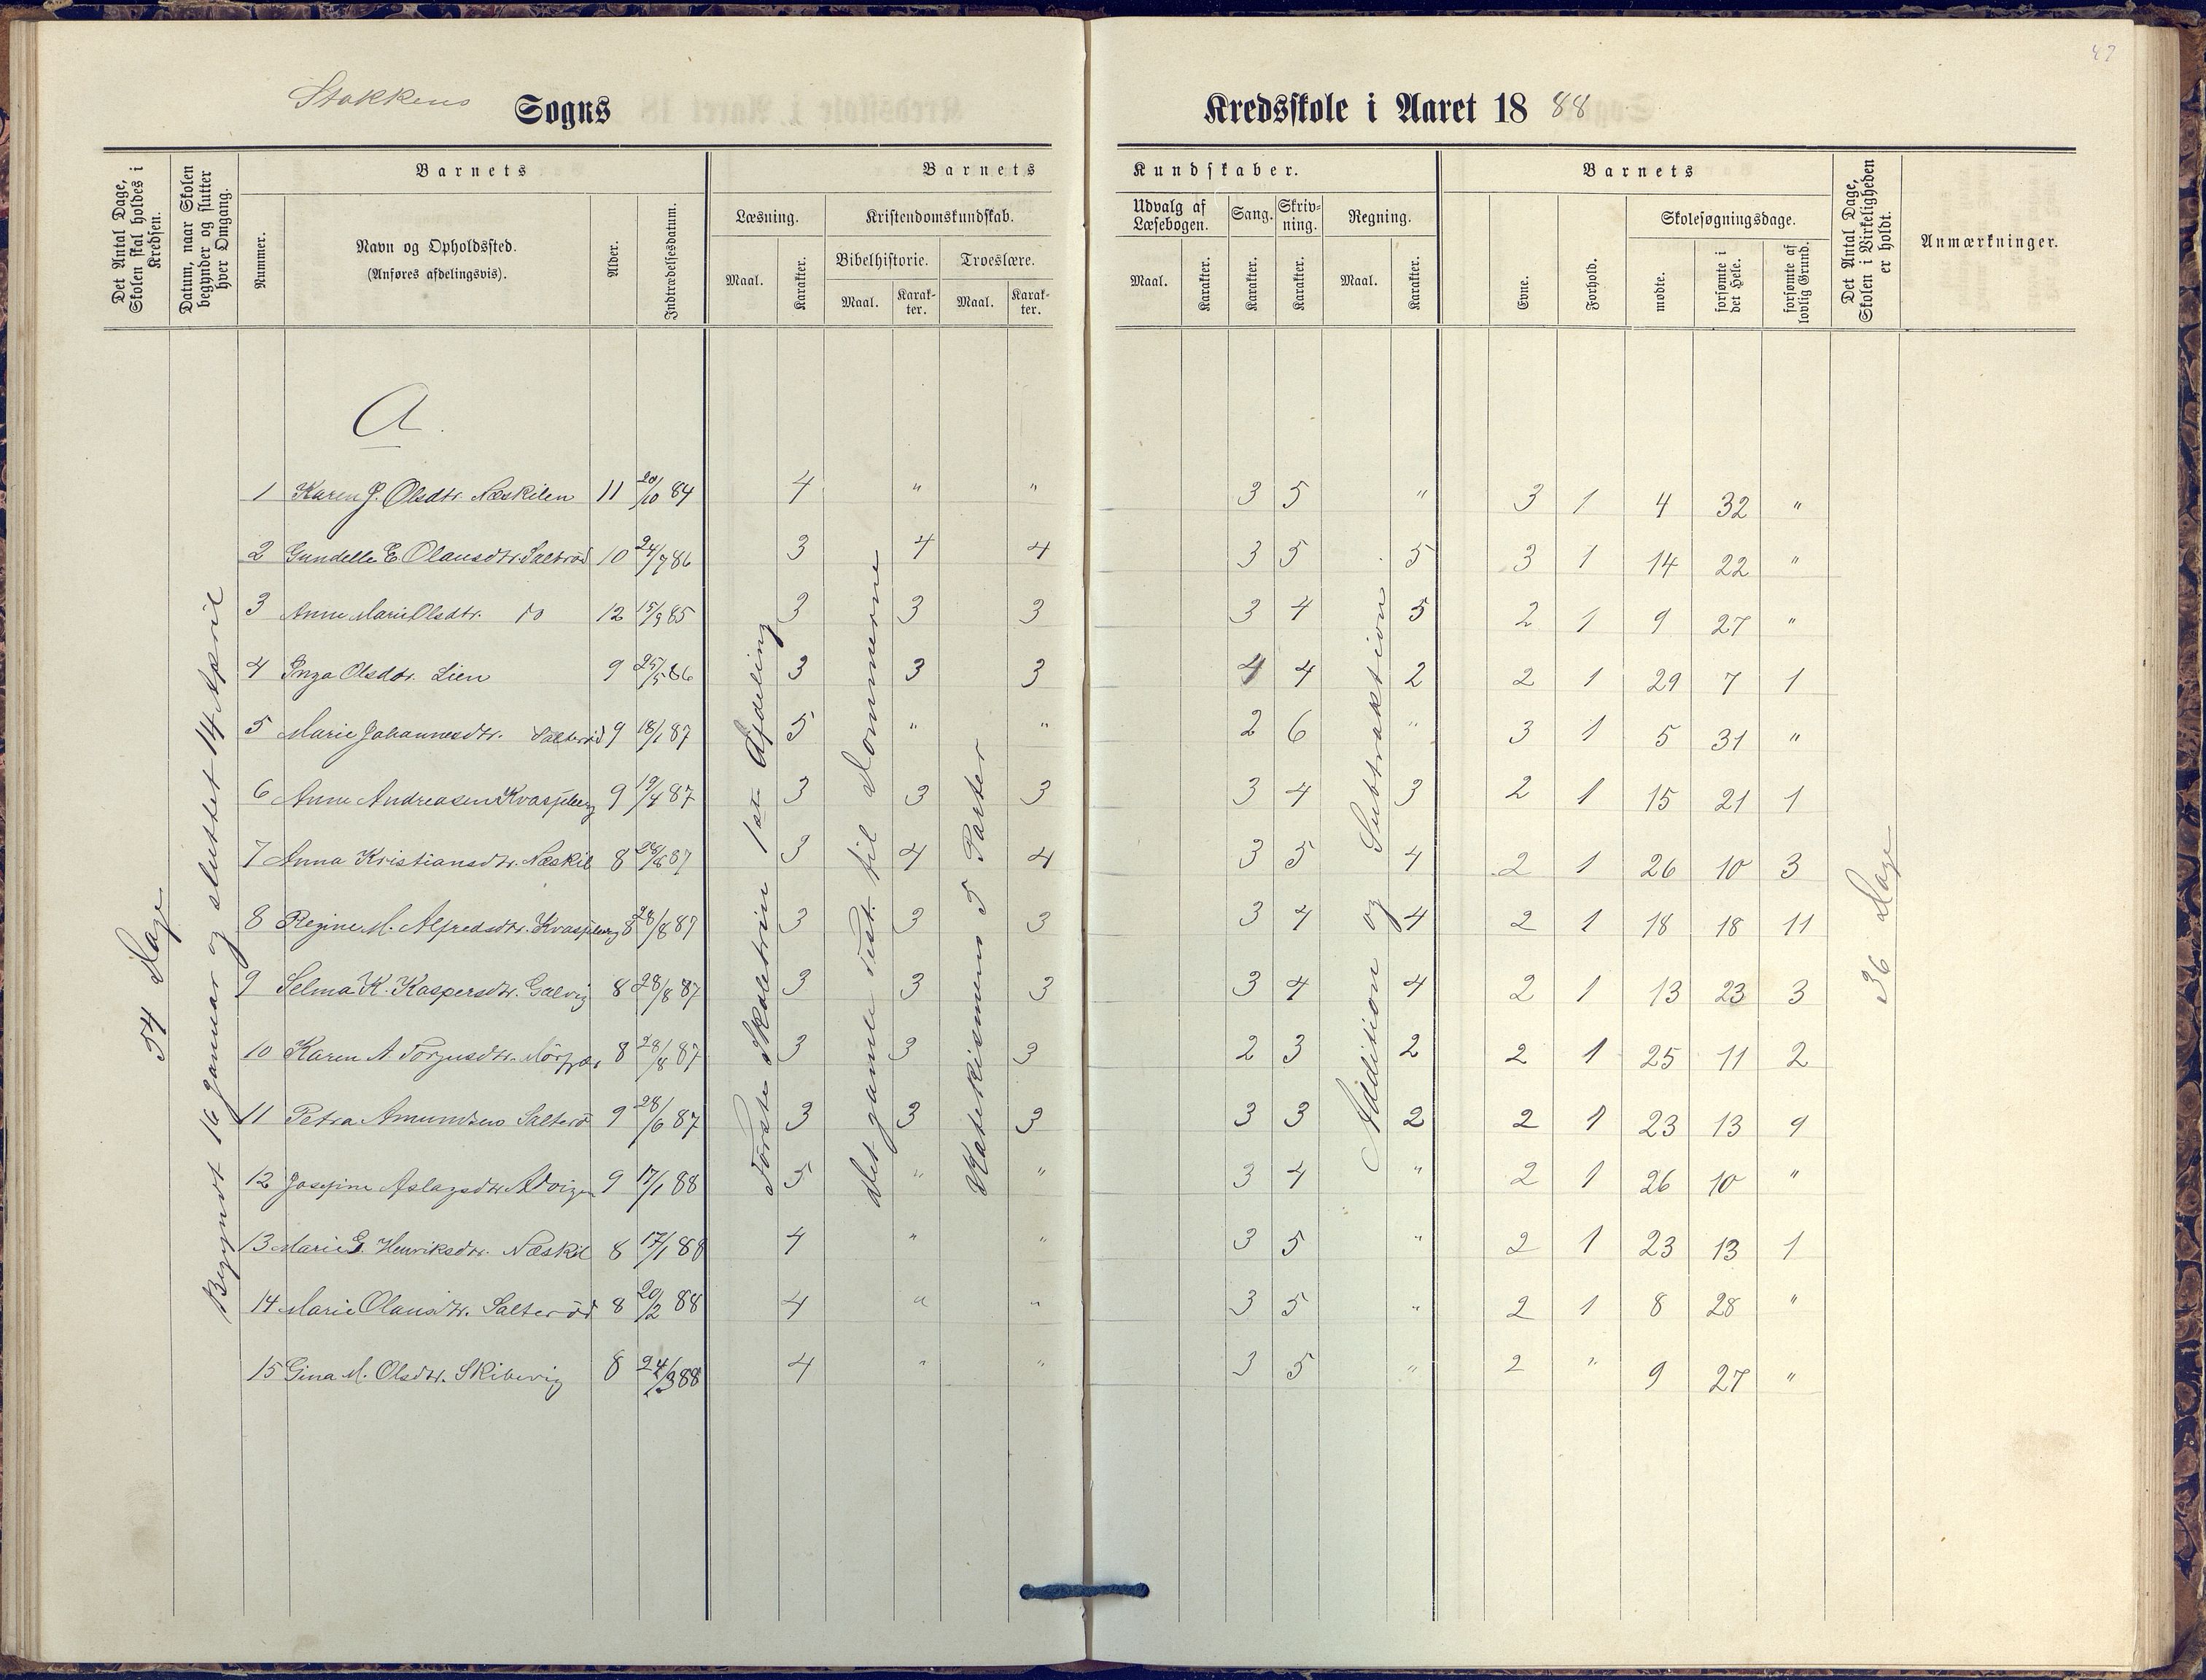 47
Stokkens Sogns Kredsskole i Aaret 1888
Det Antal Dage, Skolen skal holdes i Kredsen.
Datum, naar Skolen begynder og slutter hver Omgang.
Barnets
Nummer.
Navn og Opholdssted.
(Anføres afdelingsvis).
Alder.
Indtrædelsesdatum.
Barnets Kundskaber.
Læsning.
Maal.
Karakter.
Kristendomskundskab.
Bibelhistorie.
Maal.
Karakter.
Troeslære.
Maal.
Karakter.
Udvalg af Læsebogen.
Maal.
Karakter.
Sang.
Karakter.
Skrivning.
Karakter.
Regning.
Maal.
Karakter.
Barnets
Evne.
Forhold.
Skolesøgningsdage.
mødte.
forsømte i det Hele.
forsømte af lovlig Grund.
Det Antal Dage, Skolen i Virkeligheden er holdt.
Anmærkninger.
54 Dage
Begyndt 16 Januar og sluttet 14 April
Første Skoletrin 1ste Afdeling
Det gamle Test. til Dommerne
Katekismens 5 Parter
Addition og Subtraktion
36 Dage
A.
1 Karen J. Olsdtr. Næskilen 11 20/10 84 4 " " 3 5 " 3 1 4 32 "
2 Gundelle E Olausdtr. Salterød 10 24/7 86 3 4 4 3 5 5 3 1 14 22 "
3 Anne Marie Olsdtr. do 12 15/9 85 3 3 3 3 4 5 2 1 9 27 "
4 Inga Olsdtr. Lien 9 25/5 86 3 3 3 4 4 2 2 1 29 7 1
5 Marie Johannesdtr. Salterød 9 18/1 87 5 " " 2 6 " 3 1 5 31 "
6 Anne Andreasen Kvasjberg 9 19/4 87 3 3 3 3 4 3 2 1 15 21 1
7 Anna Kristiansdtr. Næskil 8 87 3 4 4 3 5 4 2 1 26 10 3
8 Regine M. Alfredsdtr. Kvasjberg 8 28/8 87 3 3 3 3 4 4 2 1 18 18 11
9 Selma K. Kaspersdtr. Galvig 8 28/8 87 3 3 3 3 4 4 2 1 13 23 3
10 Karen A Torjusdtr. 8 28/8 87 3 3 3 2 3 2 2 1 25 11 2
11 Petra Amundsen Salterø 9 28/6 87 3 3 3 3 3 2 2 1 23 13 9
12 Josefine Aslagsdtr 9 17/1 88 5 " " 3 4 " 2 1 26 10 "
13 Marie G. Henriksdtr. Næskil 8 17/1 88 4 " " 3 5 " 2 1 23 13 1
14 Marie Olausdtr. Salterød 8 20/2 88 4 " " 3 5 " 2 1 8 28 "
15 Gina M. Olsdtr. Skibevig 8 24/3 88 4 " " 3 5 " 2 " 9 27 "